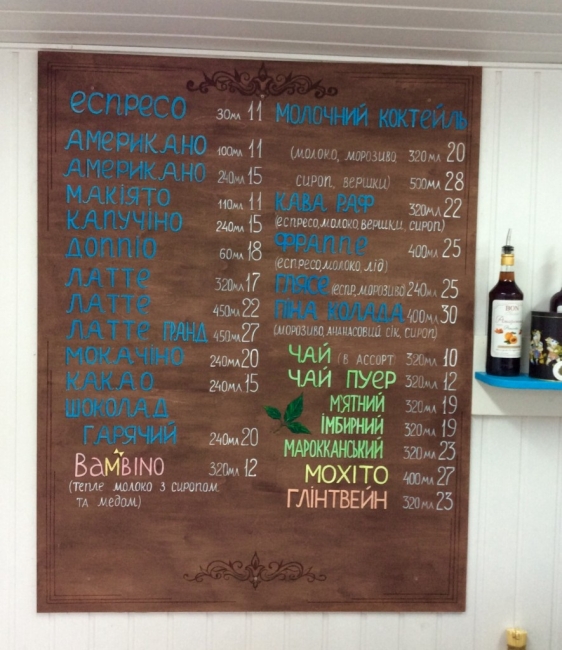 еспресо 30мл 11
Американо 100мл 11
Американо 240мл 15
Макіято 110мл 11
Капучіно 240мл 15
Доппіо 60мл 18
Латте 320мл 17
Латте 450мл 22
Латте гранд 450мл 27
Мокачіно 240мл 20
Какао 240мл 15
Шоколад
гарячий 240мл 20
Bambino 320мл 12
(тепле молоко з сиропом
та медом)
Молочний коктейль
(молоко, морозиво 320мл 20
сироп, вершки) 500мл 28
Кава Раф 320мл 22
(еспресо, молоко, вершки, сироп)
Фраппе 400мл 25
(еспресо, молоко, лід)
Глясе (еспр, морозиво) 240мл 25
Піна Колада 400мл 30
(морозиво, ананасовий сік, сироп)
Чай (в ассорт 320мл 10
Чай Пуер 320мл 12
М'ятний 320мл 19
Імбирний 320мл 19
Марокканський 320мл 23
Мохіто 400мл 27
Глінтвейн 320мл 23